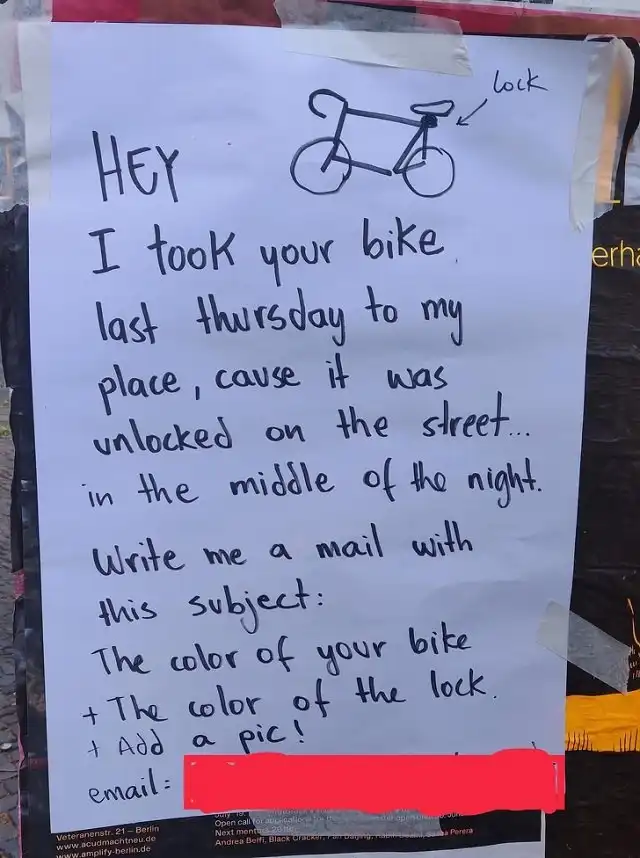 lock
HEY
I took your bike
last thursday to my
place, cause it was
unlocked on the street...
in the middle of the night.
Write me a mail with
this subject:
The color of your bike
+ The color of the lock.
+ Add a pic!
email:
erha
Veteranenstr. 21 – Berlin
www.acudmachtneu.de
www.amplify-berlin.de
Open call for applications for
Next
Andrea Belfi, Black Cracker,
Perera